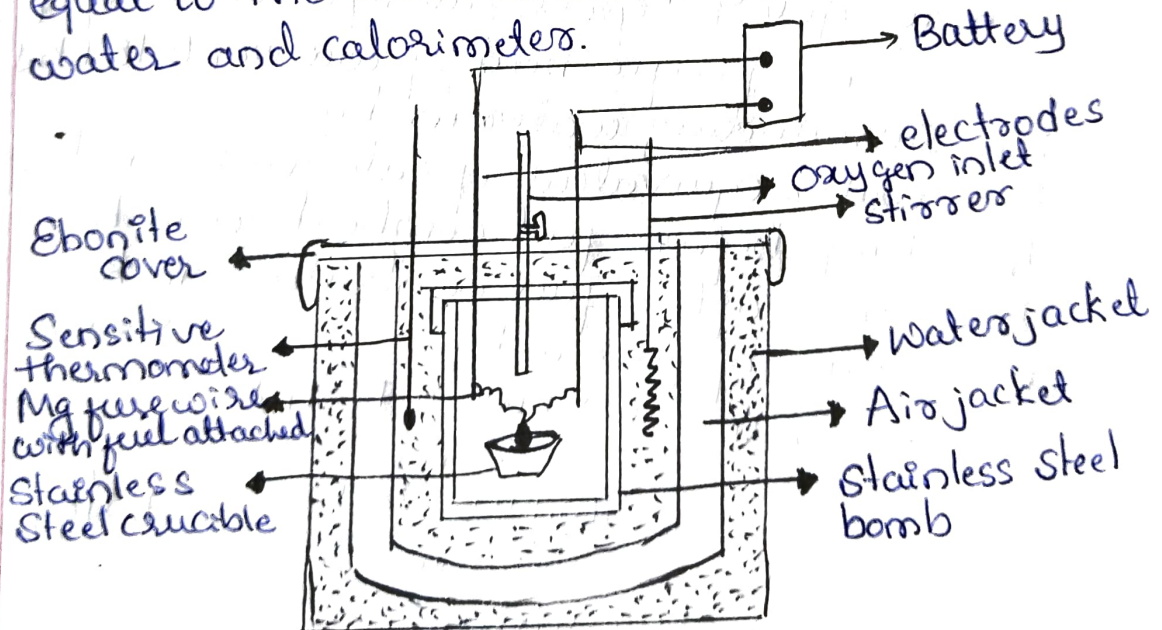 equal to the
water and calorimeter.
Battery
electrodes
oxygen inlet
stirrer
Ebonite
cover
Sensitive
thermometer
Mg fuse wire
with fuel attached
Stainless
Steel crucible
Water jacket
Air jacket
Stainless Steel
bomb